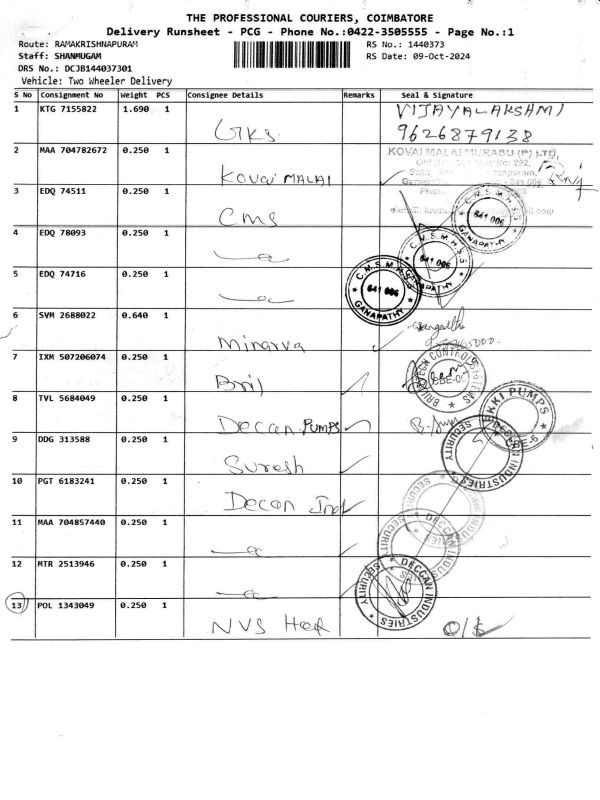 THE PROFESSIONAL COURIERS, COIMBATORE
Delivery Runsheet - PCG - Phone No.:0422-3505555 - Page No.:1
Route: RAMAKRISHNAPURAM RS No.: 1440373
Staff: SHANMUGAM RS Date: 09-Oct-2024
DRS No.: DCJB144037301
Vehicle: Two Wheeler Delivery
S No Consignment No Weight PCS Consignee Details Remarks Seal & Signature
1 KTG 7155822 1.690 1 GKS VIJAYALAKSHMI
9626879138
2 MAA 704782672 0.250 1 KOVAI MALAI KOVAI MALAI MURASU (P) LTD,
3 EDQ 74511 0.250 1 CMS C.M.S.M.H.S.S 641 006 GANAPATHY
4 EDQ 78093 0.250 1 C.M.S.M.H.S.S 641 006 GANAPATHY
5 EDQ 74716 0.250 1 C.M.S.M. 641 006 GANAPATHY
6 SVM 2688022 0.640 1 Minarva
7 IXM 507206074 0.250 1 CONTROL SYSTEMS
8 TVL 5684049 0.250 1 Deccan Pumps PUMPS CBE-6
9 DDG 313588 0.250 1 Suresh SECURITY DECCAN INDUSTRIES
10 PGT 6183241 0.250 1 Deccan Ind
11 MAA 704857440 0.250 1
12 MTR 2513946 0.250 1 SECURITY DECCAN INDUSTRIES
13 POL 1343049 0.250 1 NVS